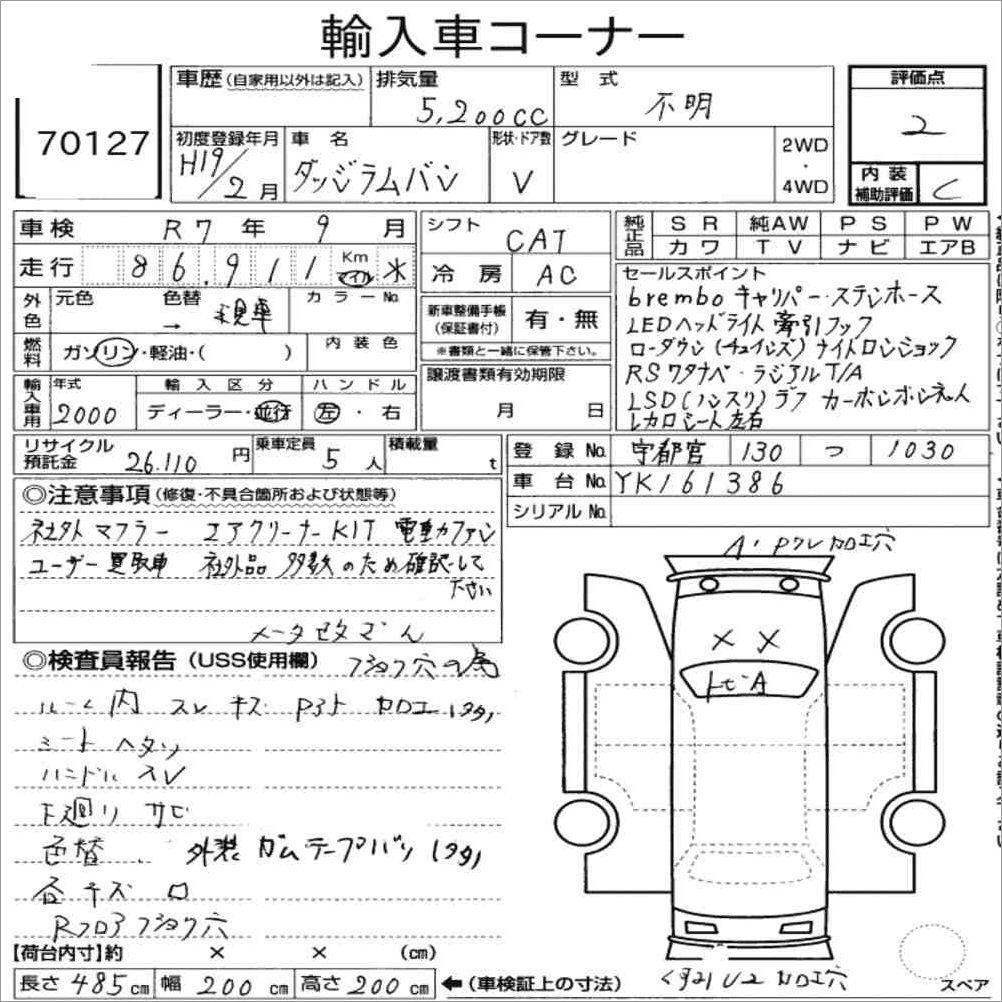 輸入車コーナー
70127
車歴 (自家用以外は記入)
排気量 5,200cc
型式 不明
評価点 2
初度登録年月 H19/2月
車名 ダッジラムバン
形状・ドア数 V
グレード
2WD・4WD
内装補助評価 C
車検 R7年 9月
シフト CAT
純正品 SR 純AW PS PW
カワ TV ナビ エアB
走行 86,911 Km マイル ※
冷房 AC
セールスポイント
brembo キャリパー・ステンホース
外色 元色 色替 → 現車 カラーNo.
新車整備手帳(保証書付) 有・無
※書類と一緒に保管下さい。
LEDヘッドライト 牽引フック
ローダウン(チュインズ) ナイトロンショック
燃料 ガソリン・軽油・( )
内装色
譲渡書類有効期限 月 日
RSワタナベ・ラジアルT/A
LSD(ノンスリ) カーボンボンネット
レカロシート左右
輸入車用 年式 2000
輸入区分 ディーラー・並行
ハンドル 左・右
リサイクル預託金 26.110円
乗車定員 5人
積載量 t
登録No. 宇都宮 130 つ 1030
車台No. YK161386
シリアルNo.
◎注意事項(修復・不具合箇所および状態等)
社外マフラー エアクリーナーKIT 電動ファン
ユーザー買取車 社外品多数のため確認して
下さい
メータ改ざん
A・Pワレ加工穴
◎検査員報告(USS使用欄)
ルーム内 スレ キズ 加工
シートヘタリ
ハンドルスレ
下廻りサビ
色替 外装 ガムテープバリ
各キズ
Rフロア 穴
トビA
加工穴
【荷台内寸】約 × × (cm)
長さ 485cm 幅 200cm 高さ 200cm ←(車検証上の寸法)
スペア